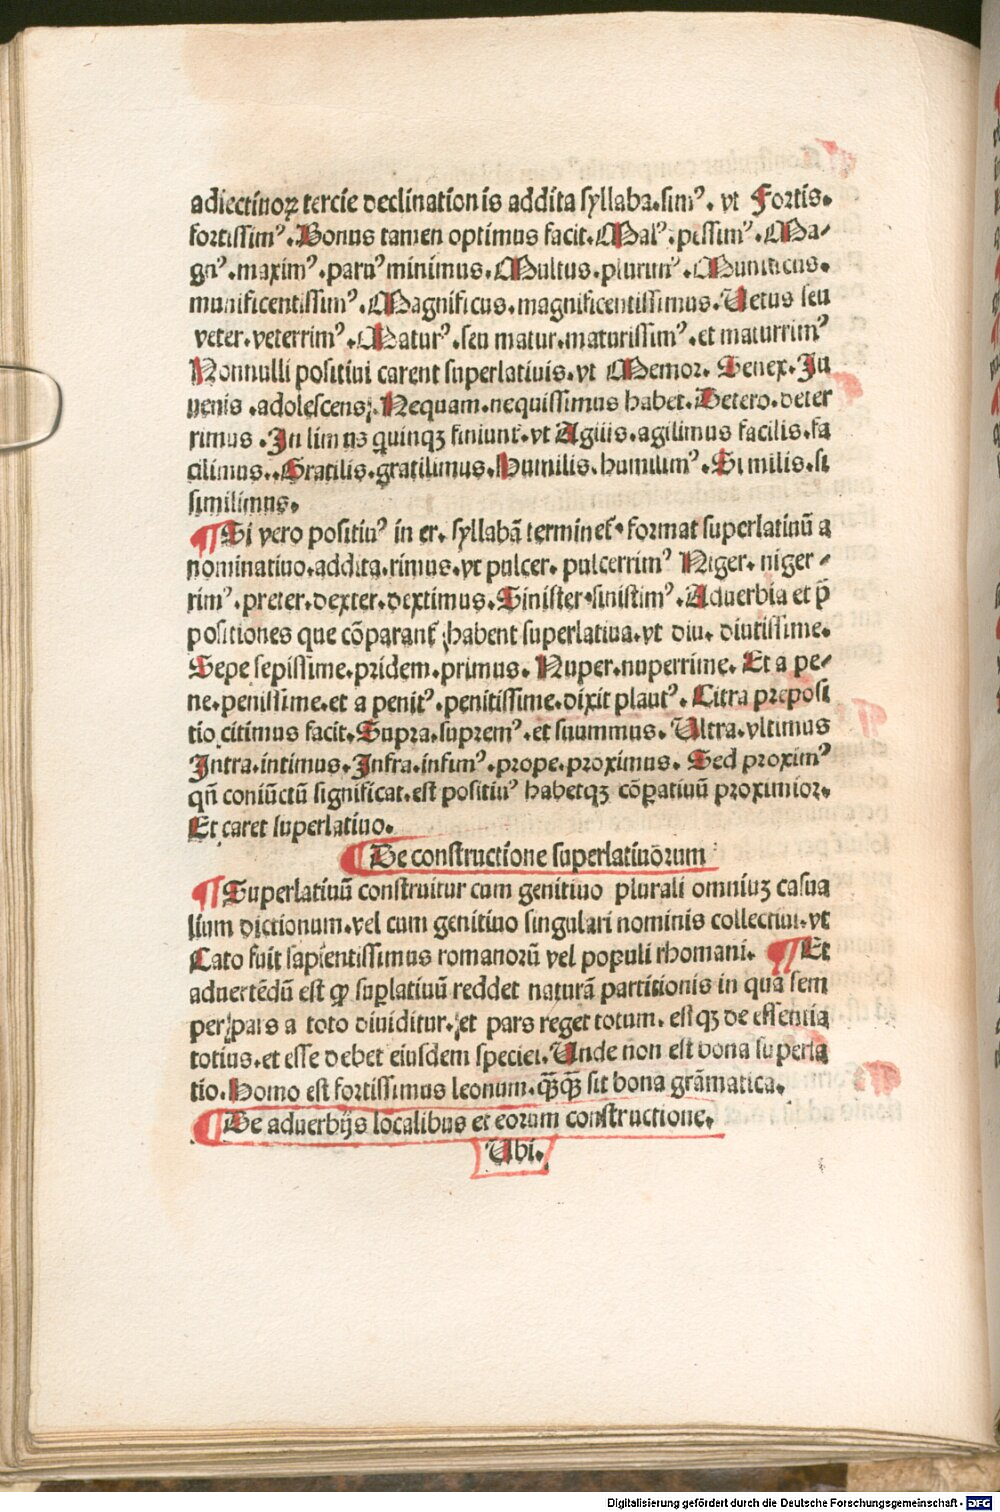 adiectiuoꝝ tercie declinationis addita syllaba.simꝰ. vt Fortis.
fortissimꝰ. Bonus tamen optimus facit. Malꝰ. pessimꝰ. Ma-
gnꝰ. maximꝰ. paruꝰ minimus. Multus. plurimꝰ. Munificus.
munificentissimꝰ. Magnificus. magnificentissimus. Uetus seu
veter. veterrimꝰ. Maturꝰ. seu matur. maturissimꝰ. et maturrimꝰ
Nonnulli positiui carent superlatiuis. vt Memor. Senex. Ju
uenis .adolescens. Nequam. nequissimus habet. Detero. deter
rimus . Jn limus quinqꝫ finiunt. vt Agilis. agilimus facilis. fa
cilimus. Gracilis. gracilimus. Humilis. humilimꝰ. Similis. si
similimus.
¶ Si vero positiuꝰ in er. syllabā termineꝉ. format superlatiuū a
nominatiuo. addita. rimus. vt pulcer. pulcerrimꝰ Niger. niger-
rimꝰ. preter. dexter. dextimus. Sinister. sinistimꝰ. Aduerbia et p̄
positiones que cōparanꝉ habent superlatiua. vt diu. diutissime.
Sepe sepissime. pridem. primus. Nuper. nuperrime. Et a pe-
ne. penissime. et a penitꝰ. penitissime. dixit plautꝰ. Citra preposi
tio citimus facit. Supra. supremꝰ. et summus. Ultra. vltimus
Jntra. intimus. Jnfra. infimꝰ. prope. proximus. Sed proximꝰ
qn̄ coniūctū significat. est positiuꝰ habetqꝫ cōꝑatiuū proximior.
Et caret superlatiuo.
¶ De constructione superlatiuorum
¶ Superlatiuū construitur cum genitiuo plurali omniuꝫ casua
lium dictionum. vel cum genitiuo singulari nominis collectiui. vt
Cato fuit sapientissimus romanorū vel populi rhomani. ¶ Et
aduertēdū est ꝙ suꝑlatiuū reddet naturā partitionis in qua sem
per pars a toto diuiditur. et pars reget totum. estqꝫ de essentia
totius. et esse debet eiusdem speciei. Unde non est bona superla
tio. Homo est fortissimus leonum. qꝙ̄qꝙ̄ sit bona grāmatica.
¶ De aduerbijs localibus et eorum constructione.
Ubi.
Digitalisierung gefördert durch die Deutsche Forschungsgemeinschaft - DFG